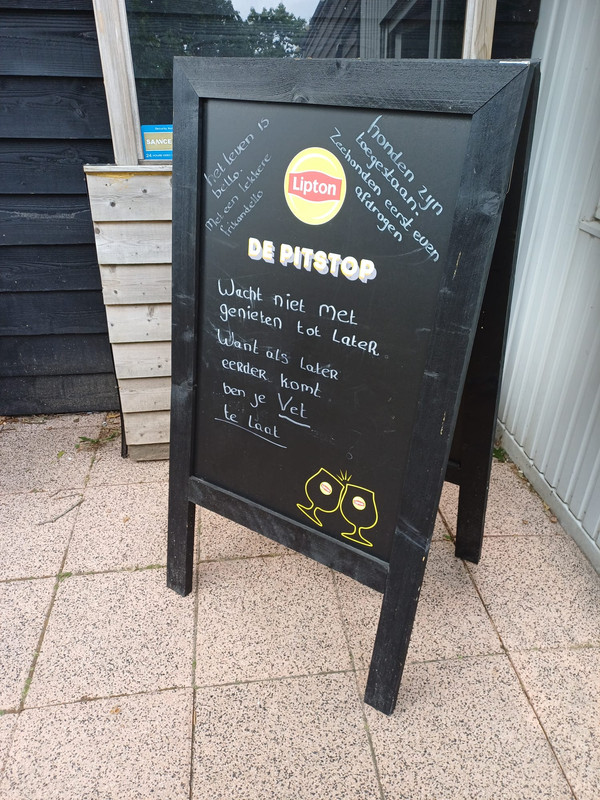 SAMCE
het leven is
bello
Met een lekkere
frikandello
honden zijn
toegestaan!
Zeehonden eerst even
afdrogen
Lipton
DE PITSTOP
Wacht niet met
genieten tot Later
Want als Later
eerder komt
ben je Vet
te laat